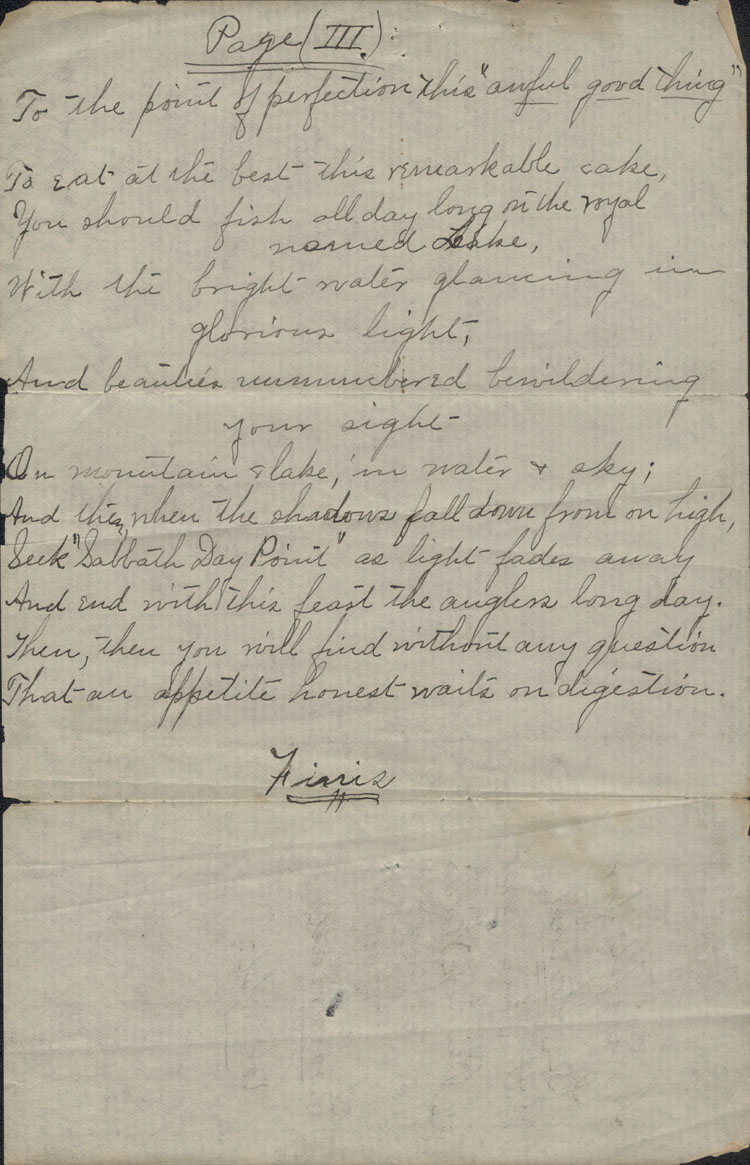 Page (III.):
To the point of perfection this "awful good thing"
To eat at the best this remarkable cake,
You should fish all day long on the royal
named Lake,
With the bright water glancing in
glorious light,
And beauties unnumbered bewildering
your sight
On mountain & lake, in water & sky;
And then, when the shadows fall down from on high,
Seek "Sabbath Day Point" as light fades away
And end with this feast the anglers long day.
Then, then you will find without any question
That an appetite honest waits on digestion.
Finis